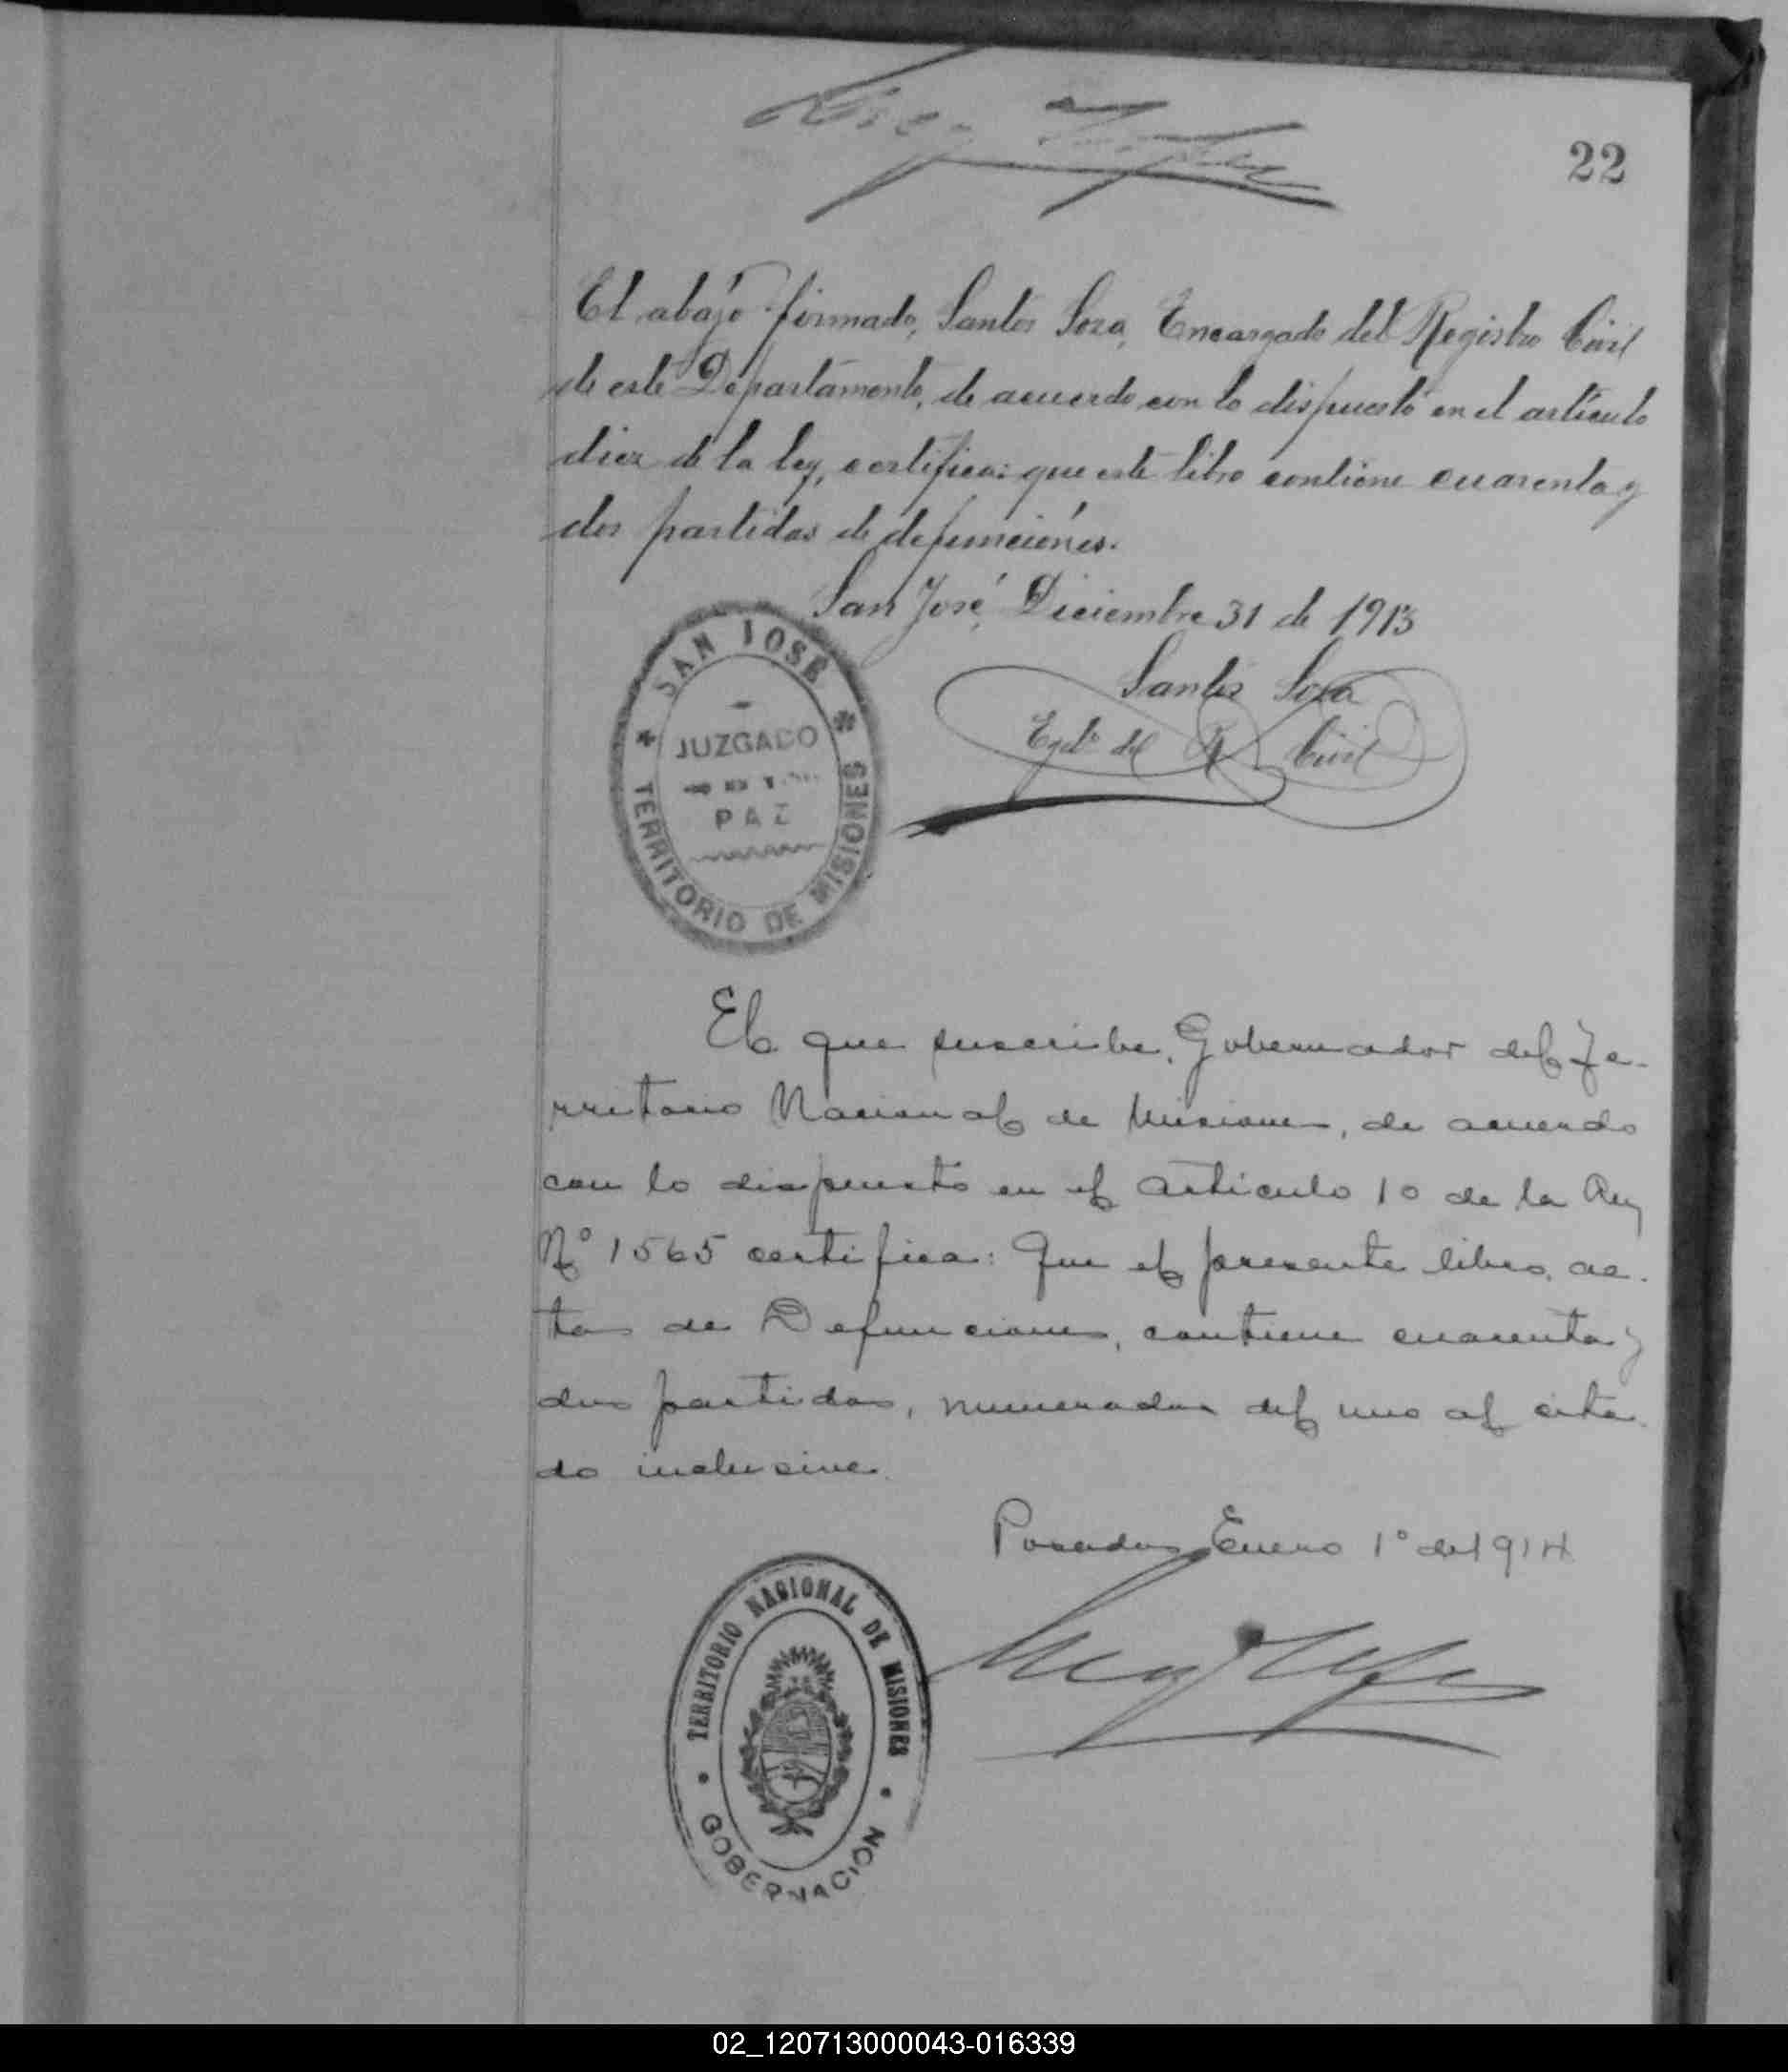 22
El abajo firmado, Santos Soza, Encargado del Registro Civil
de este Departamento, de acuerdo con lo dispuesto en el artículo
diez de la ley, certifica: que este libro contiene cuarenta y
dos partidas de defunciónes.
San José, Diciembre 31 de 1913
Santos Soza
Egdo del R. Civil
SAN JOSÉ
JUZGADO
PAZ
TERRITORIO DE MISIONES
El que suscribe, Gobernador del Te-
rritorio Nacional de Misiones, de acuerdo
con lo dispuesto en el artículo 10 de la Ley
Nº 1565 certifica: Que el presente libro, ac-
tas de Defunciones, contiene cuarenta y
dos partidas, numeradas del uno al cita-
do inclusive.
Posadas, Enero 1º de 1914
TERRITORIO NACIONAL DE MISIONES
GOBERNACIÓN
02_120713000043-016339